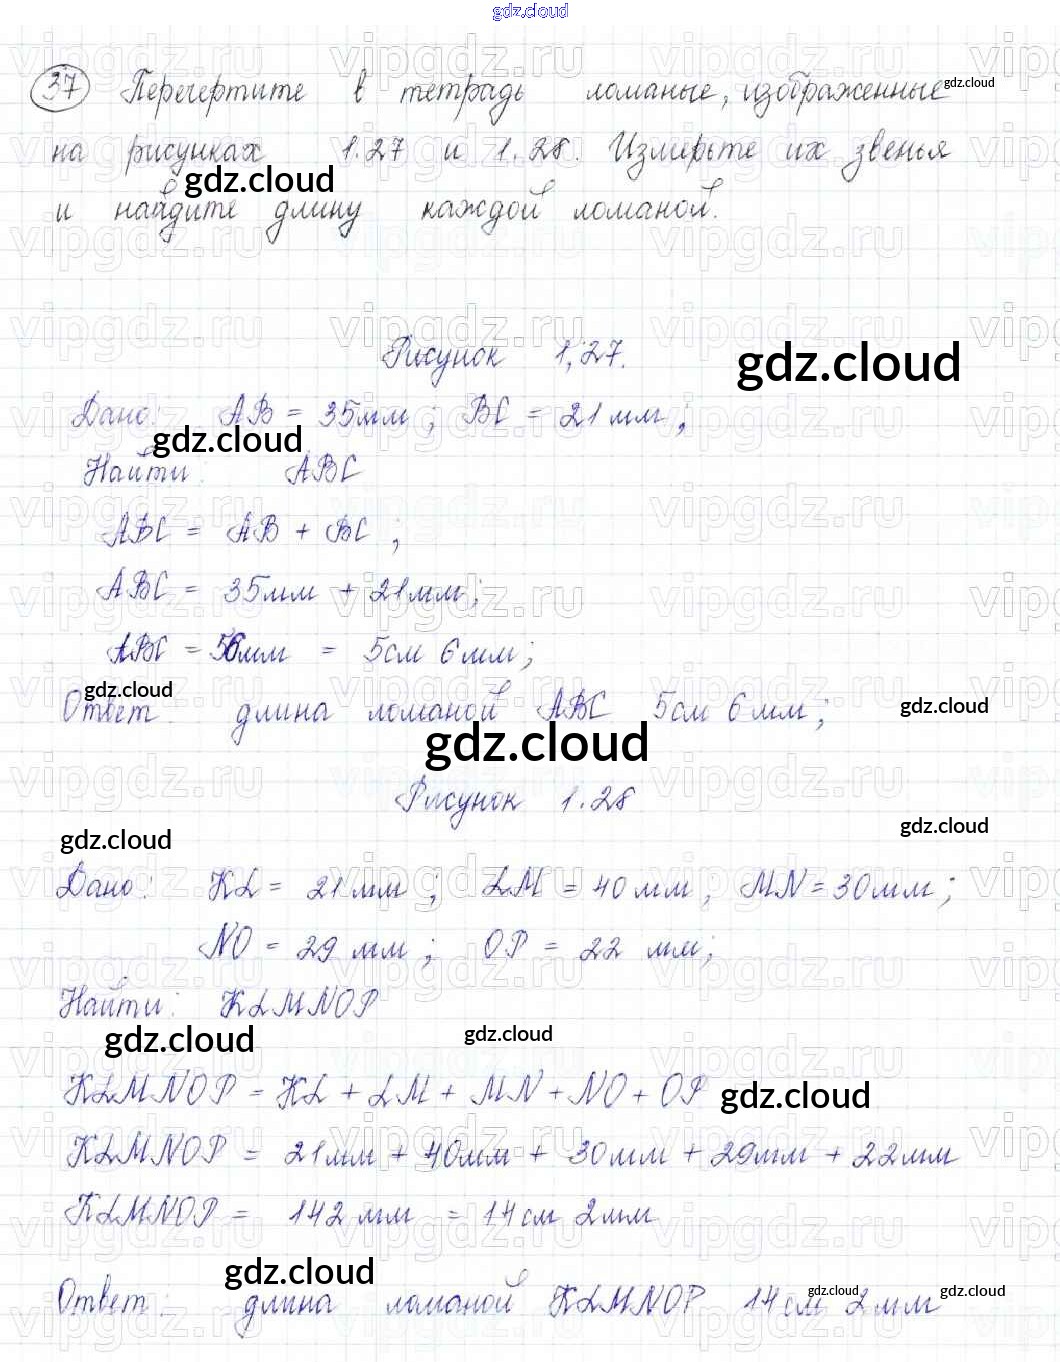 gdz.cloud
37 Перечертите в тетрадь ломаные, изображенные gdz.cloud
на рисунках 1.27 и 1.28. Измерьте их звенья
gdz.cloud
и найдите длину каждой ломаной.
Рисунок 1,27. gdz.cloud
Дано: AB = 35мм; BC = 21мм;
gdz.cloud
Найти: ABC
ABC = AB + BC;
ABC = 35мм + 21мм;
ABC = 56мм = 5см 6мм;
gdz.cloud
Ответ: длина ломаной ABC 5см 6мм; gdz.cloud
gdz.cloud
Рисунок 1.28
gdz.cloud gdz.cloud
Дано: KL = 21мм; LM = 40мм; MN = 30мм;
NO = 29 мм; OP = 22 мм;
Найти: KLMNOP
gdz.cloud gdz.cloud
KLMNOP = KL + LM + MN + NO + OP gdz.cloud
KLMNOP = 21мм + 40мм + 30мм + 29мм + 22мм
KLMNOP = 142мм = 14см 2мм
gdz.cloud
Ответ: длина ломаной KLMNOP 14см 2мм
gdz.cloud gdz.cloud
vipgdz.ru